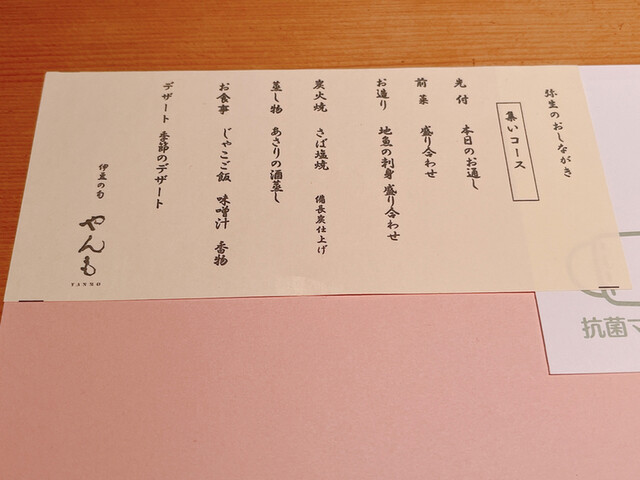 弥生のおしながき
集いコース
先付 本日のお通し
前菜 盛り合わせ
お造り 地魚の刺身盛り合わせ
炭火焼 さば塩焼 備長炭仕上げ
蒸し物 あさりの酒蒸し
お食事 じゃこご飯 味噌汁 香物
デザート 季節のデザート
伊豆の旬
やんも
YANMO
抗菌マ